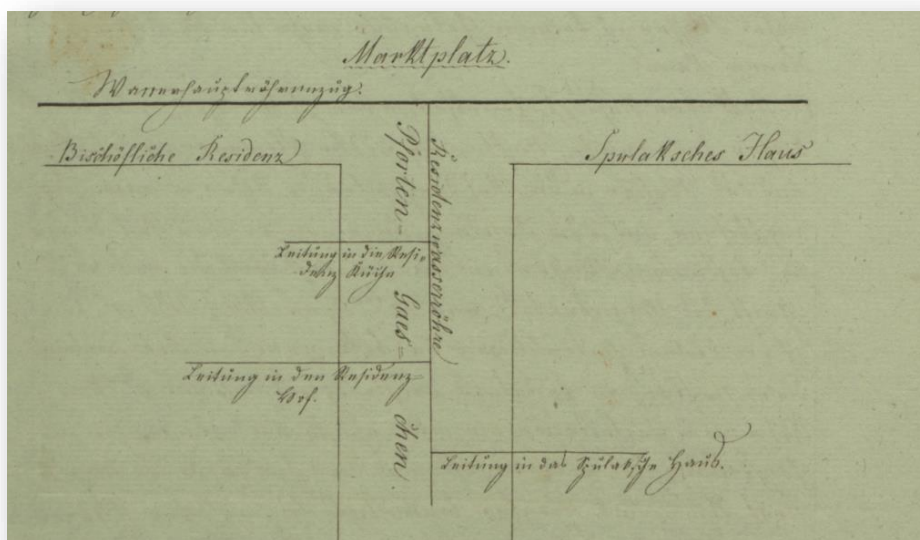 Marktplatz.
Wasserhauptröhrenzug.
Bischöfliche Residenz
Spulaksches Haus
Pforten-Gaes-chen.
Residenzwasserröhre
Leitung in die Resi-
denz Küche
Leitung in den Residenz
Hof.
Leitung in das Spulaksche Haus.